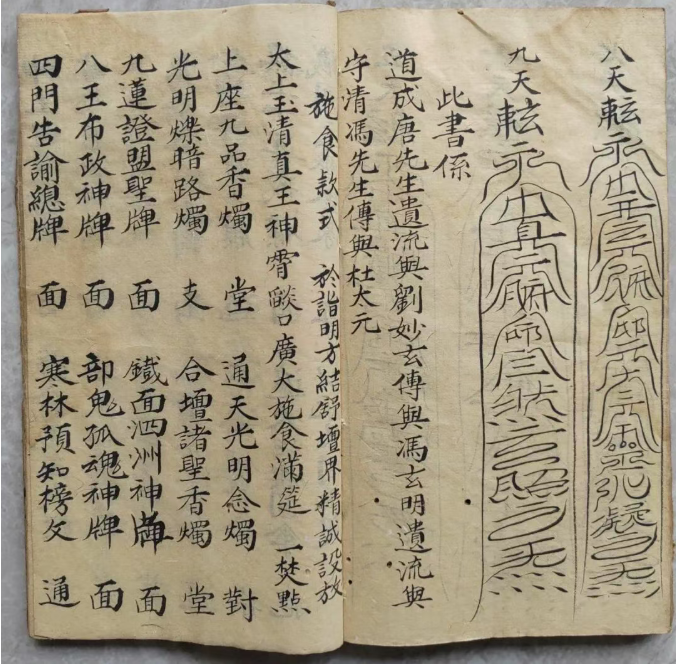 八天
九天
此書係
道成唐先生遺流與劉妙玄傳與馮玄明遺流與
字清馮先生傳與杜太元
施食款式　於詣明方結舒壇界精誠設放
太上玉清真王神霄燄口廣大施食滿筵　一焚點
上座九品香燭　堂　通天光明念燭　對
光明爍暗路燭　支　合壇諸聖香燭　堂
九蓮證盟聖牌　面　鐵面泗洲神牌　面
八王布政神牌　面　部鬼孤魂神牌　面
四門告諭總牌　面　寒林預知榜文　通